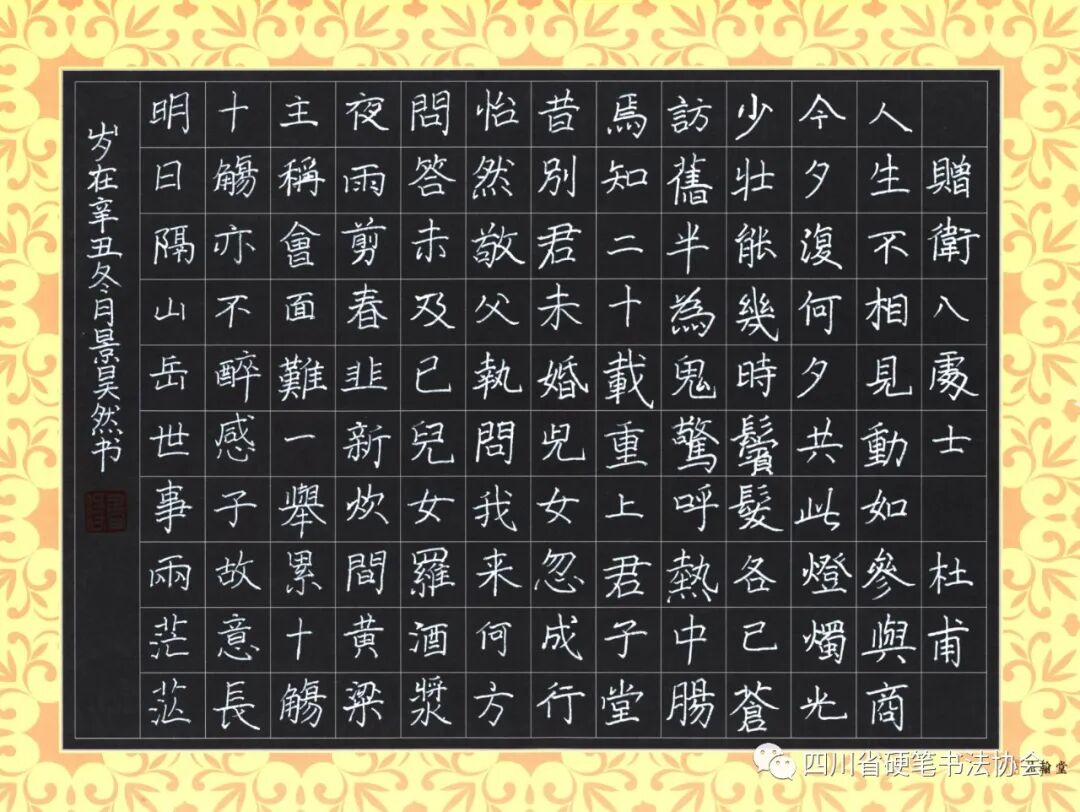 贈衛八處士 杜甫
人生不相見動如參與商
今夕復何夕共此燈燭光
少壯能幾時鬢髮各已蒼
訪舊半為鬼驚呼熱中腸
焉知二十載重上君子堂
昔別君未婚兒女忽成行
怡然敬父執問我来何方
問答未及已兒女羅酒漿
夜雨剪春韭新炊間黃粱
主稱會面難一舉累十觴
十觴亦不醉感子故意長
明日隔山岳世事兩茫茫
岁在辛丑冬月景昊然书
四川省硬笔书法协会
翰堂